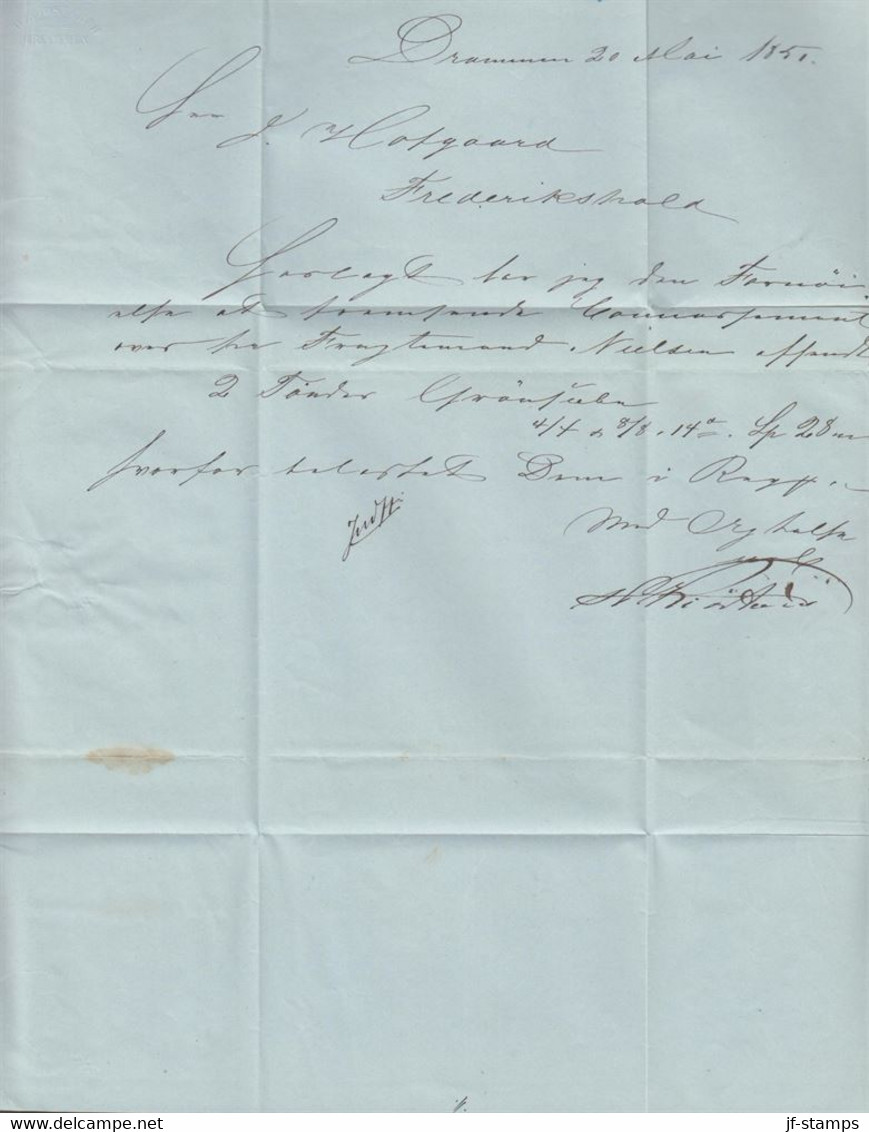 Drammen 20 Mai 1851.
Herr J. Hofgaard
Frederikshald
Vorlagt har jeg den Fornöi
else at fremsende Connossement
over pr Fragtemand Nielsen afsendt
2 Tönder Grönsæbe
4/4 8/8 14 Sp 28
hvorfor belastet Dem i Regn.
Med Agtelse
delcampe.net
jf-stamps